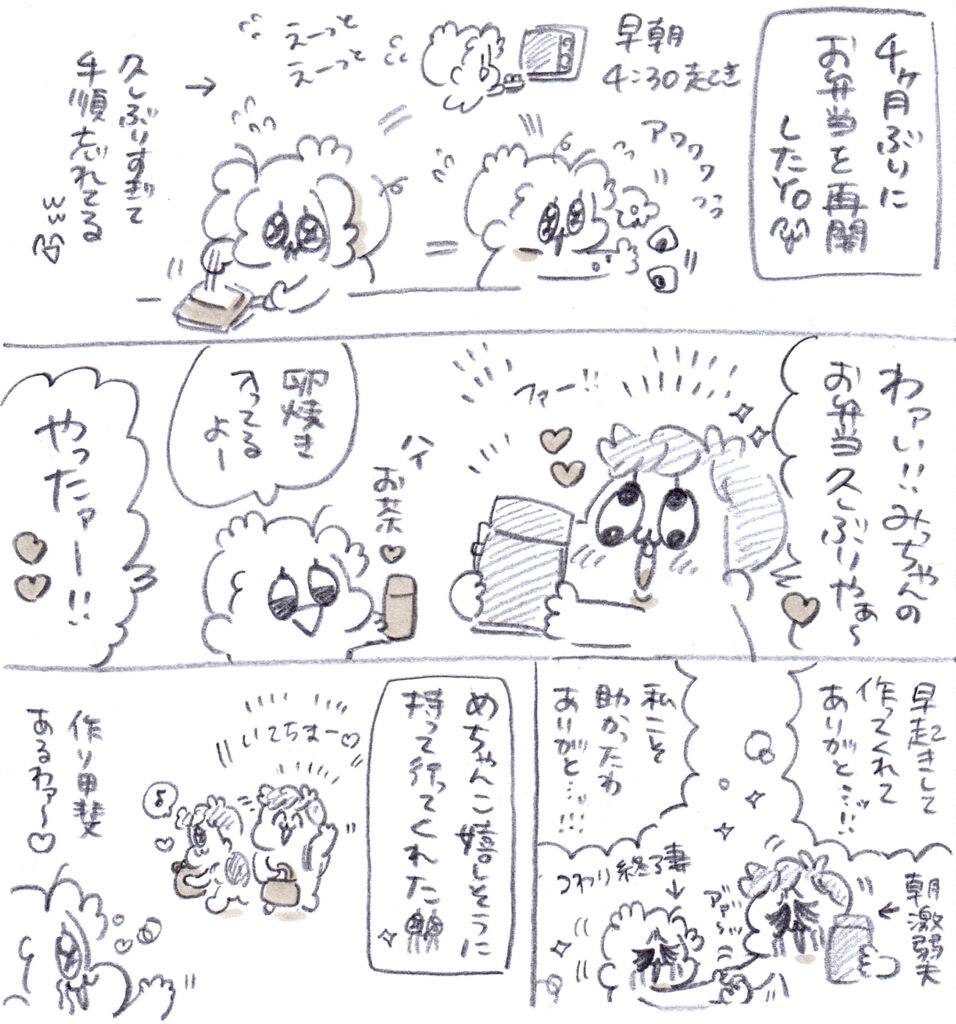 4ヶ月ぶりに
お弁当を再開
したYO
早朝
4:30起き
アワワワ
えーっと
えーっと
久しぶりすぎて
手順忘れてる
ww
わァい!!みっちゃんの
お弁当久しぶりやぁ〜
ファー!!
ハイ
お茶
卵焼き
入ってる
よー
やったァー!!
早起きして
作ってくれて
ありがと…!!
私こそ
助かったわ
ありがと…!!!
朝激弱夫
つわり終了妻
めちゃんこ嬉しそうに
持って行ってくれた
いてきまー
作り甲斐
あるわァ〜